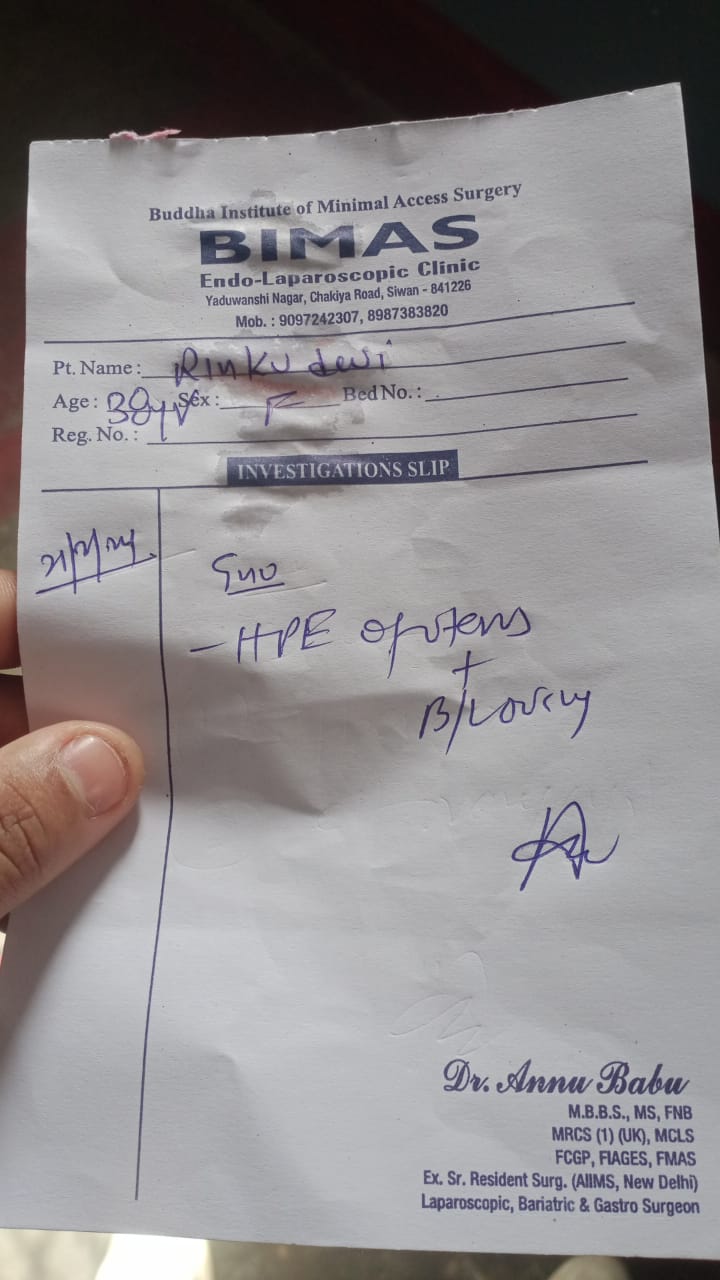 Buddha Institute of Minimal Access Surgery
BIMAS
Endo-Laparoscopic Clinic
Yaduwanshi Nagar, Chakiya Road, Siwan - 841226
Mob. : 9097242307, 8987383820
Pt. Name : Rinku devi
Age : 38yr Sex : F Bed No. :
Reg. No. :
INVESTIGATIONS SLIP
- HPE of uterus
+
B/L ovary
Dr. Annu Babu
M.B.B.S., MS, FNB
MRCS (1) (UK), MCLS
FCGP, FIAGES, FMAS
Ex. Sr. Resident Surg. (AIIMS, New Delhi)
Laparoscopic, Bariatric & Gastro Surgeon